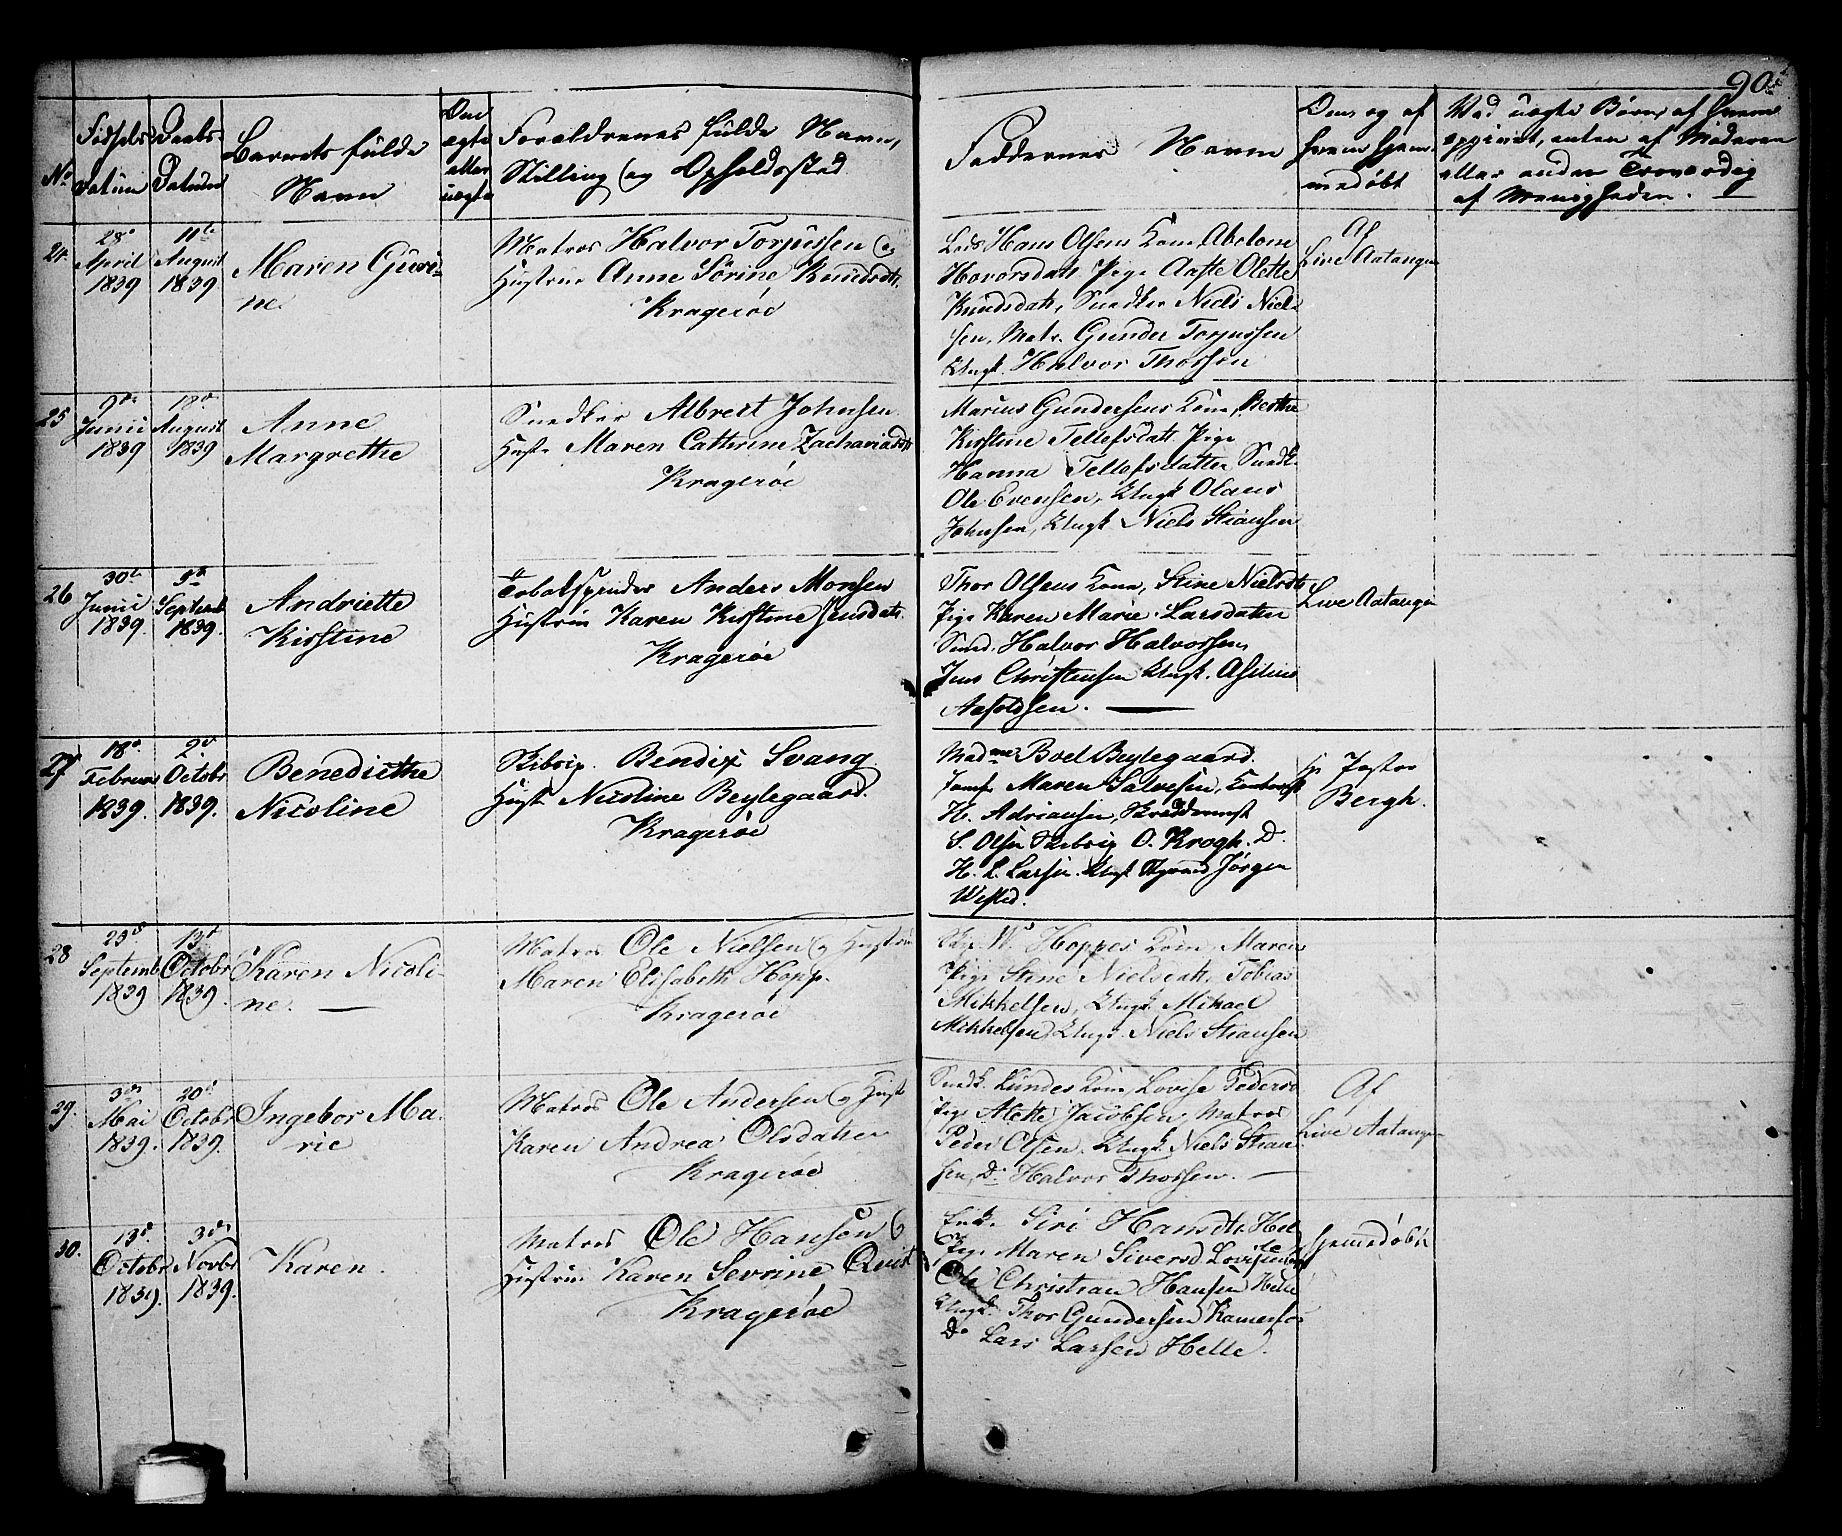 90
No
Fødsels
Datum
Daabs
Datum
Barnets fulde
Navn
Om
ægte
eller
uægte
Forældrenes fulde Navn,
Stilling og Opholdssted
Faddernes Navn
Om og af
hvem hjem
medøbt
Ved uægte Børn af hvem
opgivet, enten af Moderen
eller anden Troværdig
af Menigheden.
24
28de
April
1839
11te
August
1839
Maren Guri-
ne
Matros Halvor Torjussen og
Hustrue Anne Sørine Knudsdt.
Kragerøe
Hans Olsens Kone Abelone
Hovorsdatt. Pige Aaste Olette
Knudsdatt, Snedker Niels Niel-
sen, Matr. Gunder Torjussen
Ungk. Halvor Thorsen
Af
Live Aatangen
25
9de
Junii
1839
18de
August
1839
Anne
Margrethe
Snedker Albret Johnsen
Hust. Maren Cathrine Zachariasdt
Kragerøe
Marius Gundersens Kone, Berthe
Kirstine Tellefsdatt. Pige
Hanna Tellefsdatter Snedk.
Ole Evensen, Ungk Olaus
Johnsen, Ungk Niels Stiansen
26
30te
Junii
1839.
5te
Septemb
1839.
Andriette
Kirstine
Tobakspinder Anders Monsen
Hustrue Karen Kirstine Jensdatt.
Kragerøe
Thor Olsens Kone, Stine Nielsdt
Pige Karen Marie Larsdatter
Smed. Halvor Halvorsen
Jens Christensen Ungk.
Live Aatangen
27
18de
Februar
1839.
2den
Octobr
1839.
Benedicthe
Nicoline
Skibsip. Bendix Svang
Hust. Nicoline Beylegaard.
Kragerøe
Madme Boel Beylegaard.
Jomf. Maren Salvesen,
H. Adriansen, Skreddermst
S. Olsen O. Krogh. Do
H. L. Larsen. Ungk Jørgen
Wested.
Hr Pastor
Bergh.
28
23de
Septemb
1839
13de
Octobr
1839.
Karen Nicoli-
ne.
Matros Ole Nielsen og Hustrue
Maren Elisabeth Hopp.
Kragerøe
W. Hoppes Kone, Maren
Pige Stine Nielsdatt. Tobias
Mikkelsen, Ungk. Mikael
Mikkelsen, Ungk. Niels Stiansen
29.
3die
Mai
1839.
20de
Octobr
1839.
Ingebor Ma-
rie
Matros Ole Andersen og Hust
Karen Andrea Olsdatter
Kragerøe
Snedk. Lundes Kone, Lovise Pedersd
Pige Alette Jacobsen, Matros
Peder Olsen. Ungk Niels Stian-
sen, Do Halvor Thorsen.
Af
Live Aatangen
30.
13de
Octobr
1839.
3die
Novbr
1839.
Karen.
Matros Ole Hansen og
Hustrue Karen Sevrine Qvist
Kragerøe
Enk. Siri Hansdtr. Helle
Pige Maren Siversd.
Ole Christian Hansen Helle
Ungk. Thor Gundersen
Do Lars Larsen Helle.
Hjemedøbt